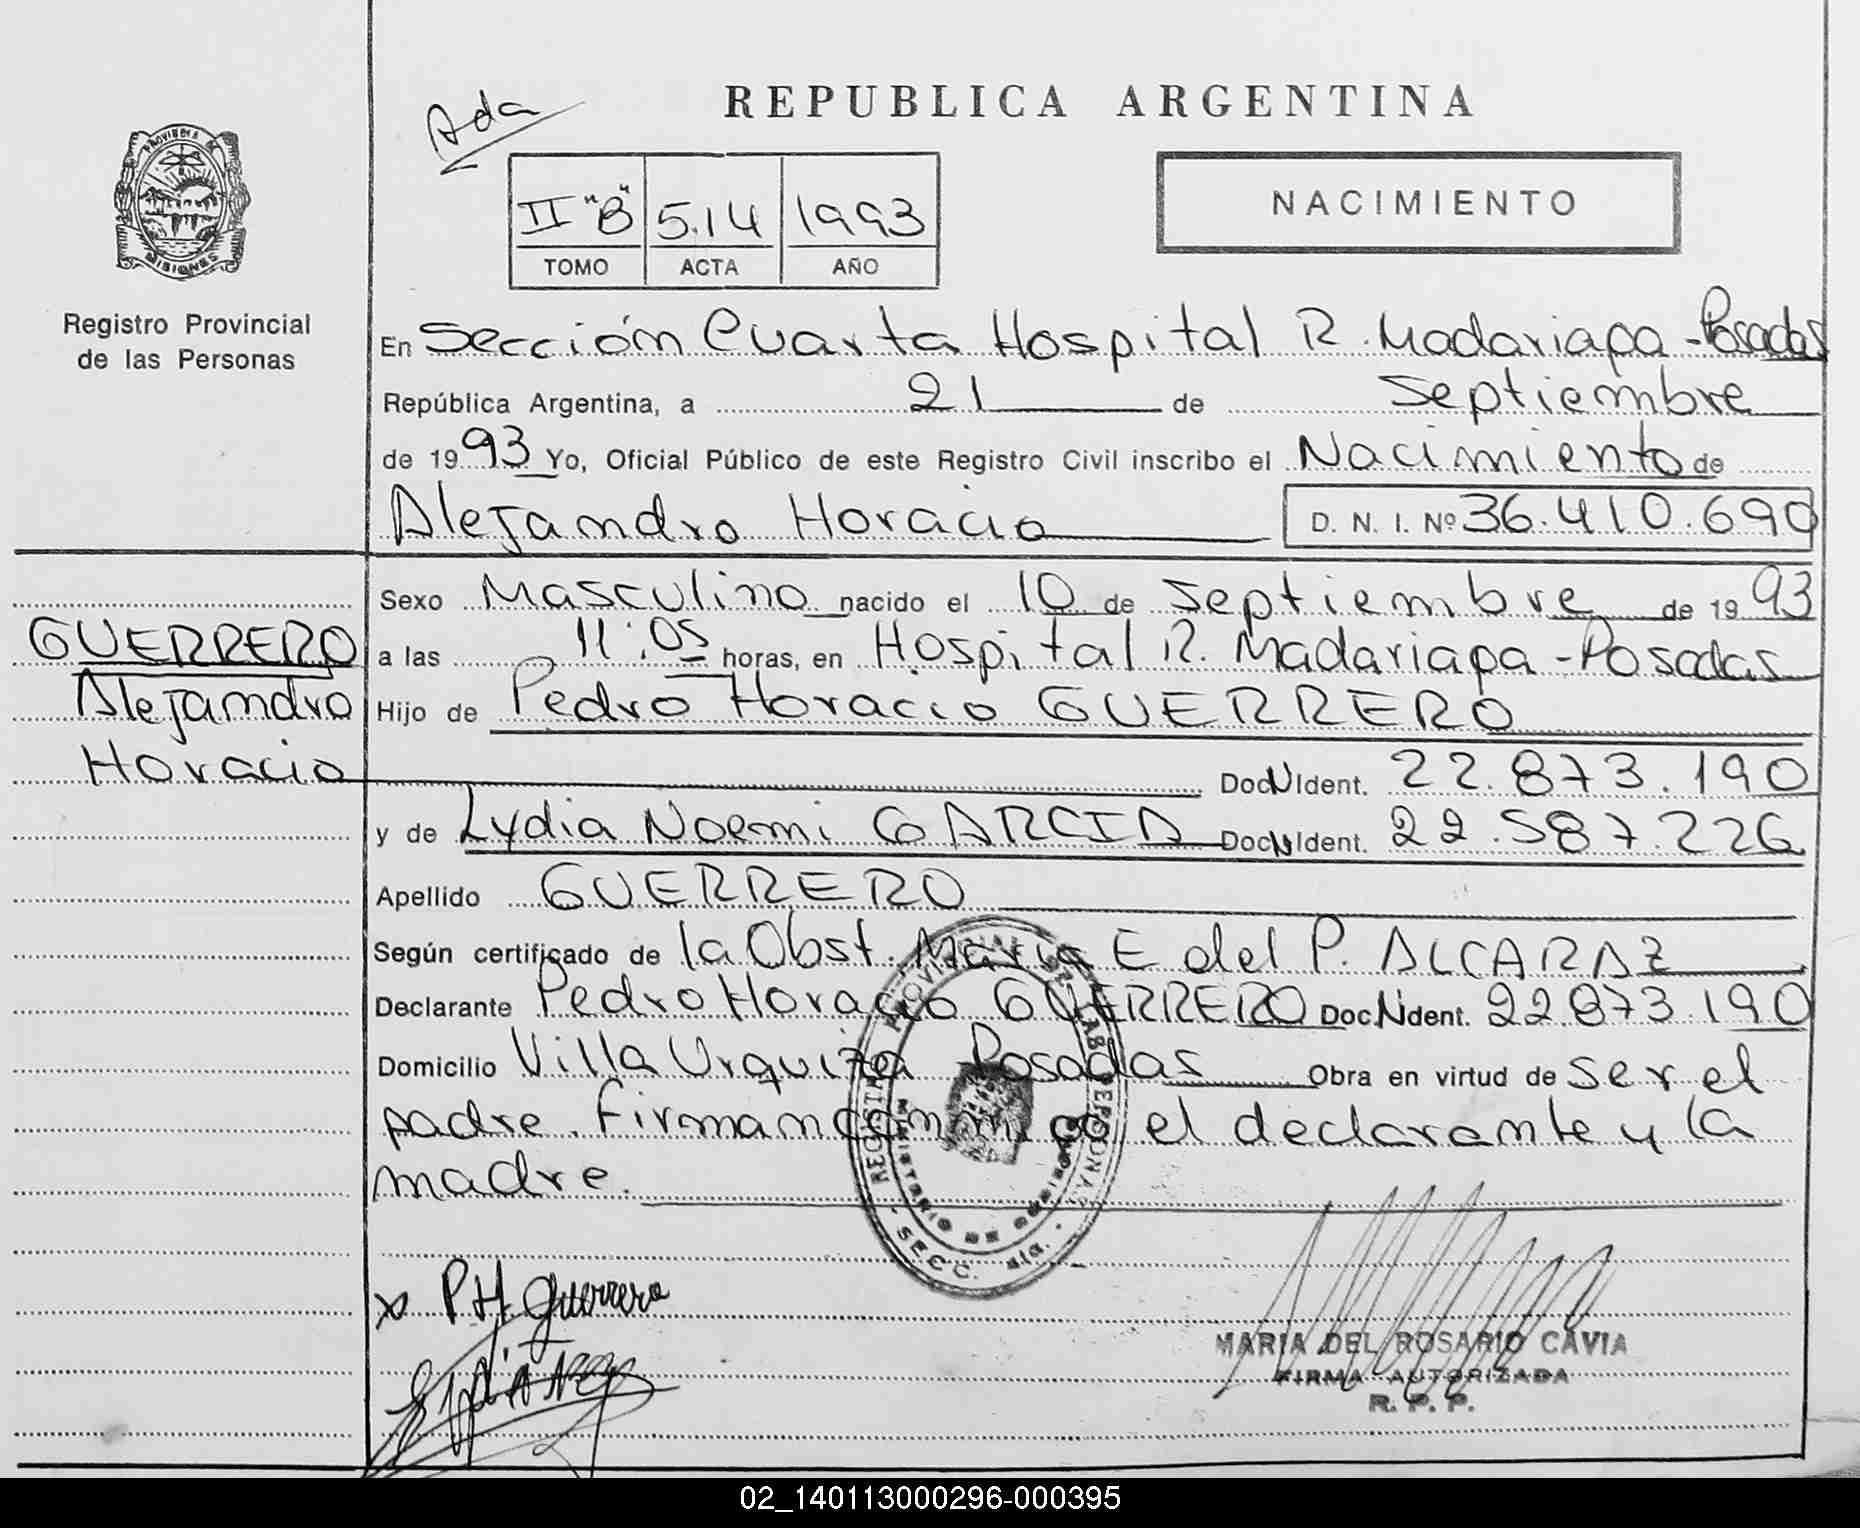 Ada
REPUBLICA ARGENTINA
PROVINCIA DE
MISIONES
Registro Provincial
de las Personas
II "B" 514 1993
TOMO ACTA AÑO
NACIMIENTO
En Sección Cuarta Hospital R. Madariaga - Posadas
República Argentina, a 21 de Septiembre
de 1993 Yo, Oficial Público de este Registro Civil inscribo el Nacimiento de
Alejandro Horacio D. N. I. Nº 36.410.690
GUERRERO
Alejandro
Horacio
Sexo Masculino nacido el 10 de Septiembre de 1993
a las 11:05 horas, en Hospital R. Madariaga - Posadas
Hijo de Pedro Horacio GUERRERO
Doc N Ident. 22.873.190
y de Lydia Noemi GARCIA Doc N Ident. 22.587.226
Apellido GUERRERO
Según certificado de la Obst. Maria E del P. ALCARAZ
Declarante Pedro Horacio GUERRERO Doc N Ident. 22.873.190
Domicilio Villa Urquiza Posadas Obra en virtud de ser el
padre. Firman conmigo el declarante y la
madre.
REGISTRO PROVINCIAL DE LAS PERSONAS
MINISTERIO DE GOBIERNO
SECC. 4ta.
x P.H. Guerrero
MARIA DEL ROSARIO CAVIA
FIRMA AUTORIZADA
R. P. P.
02_140113000296-000395